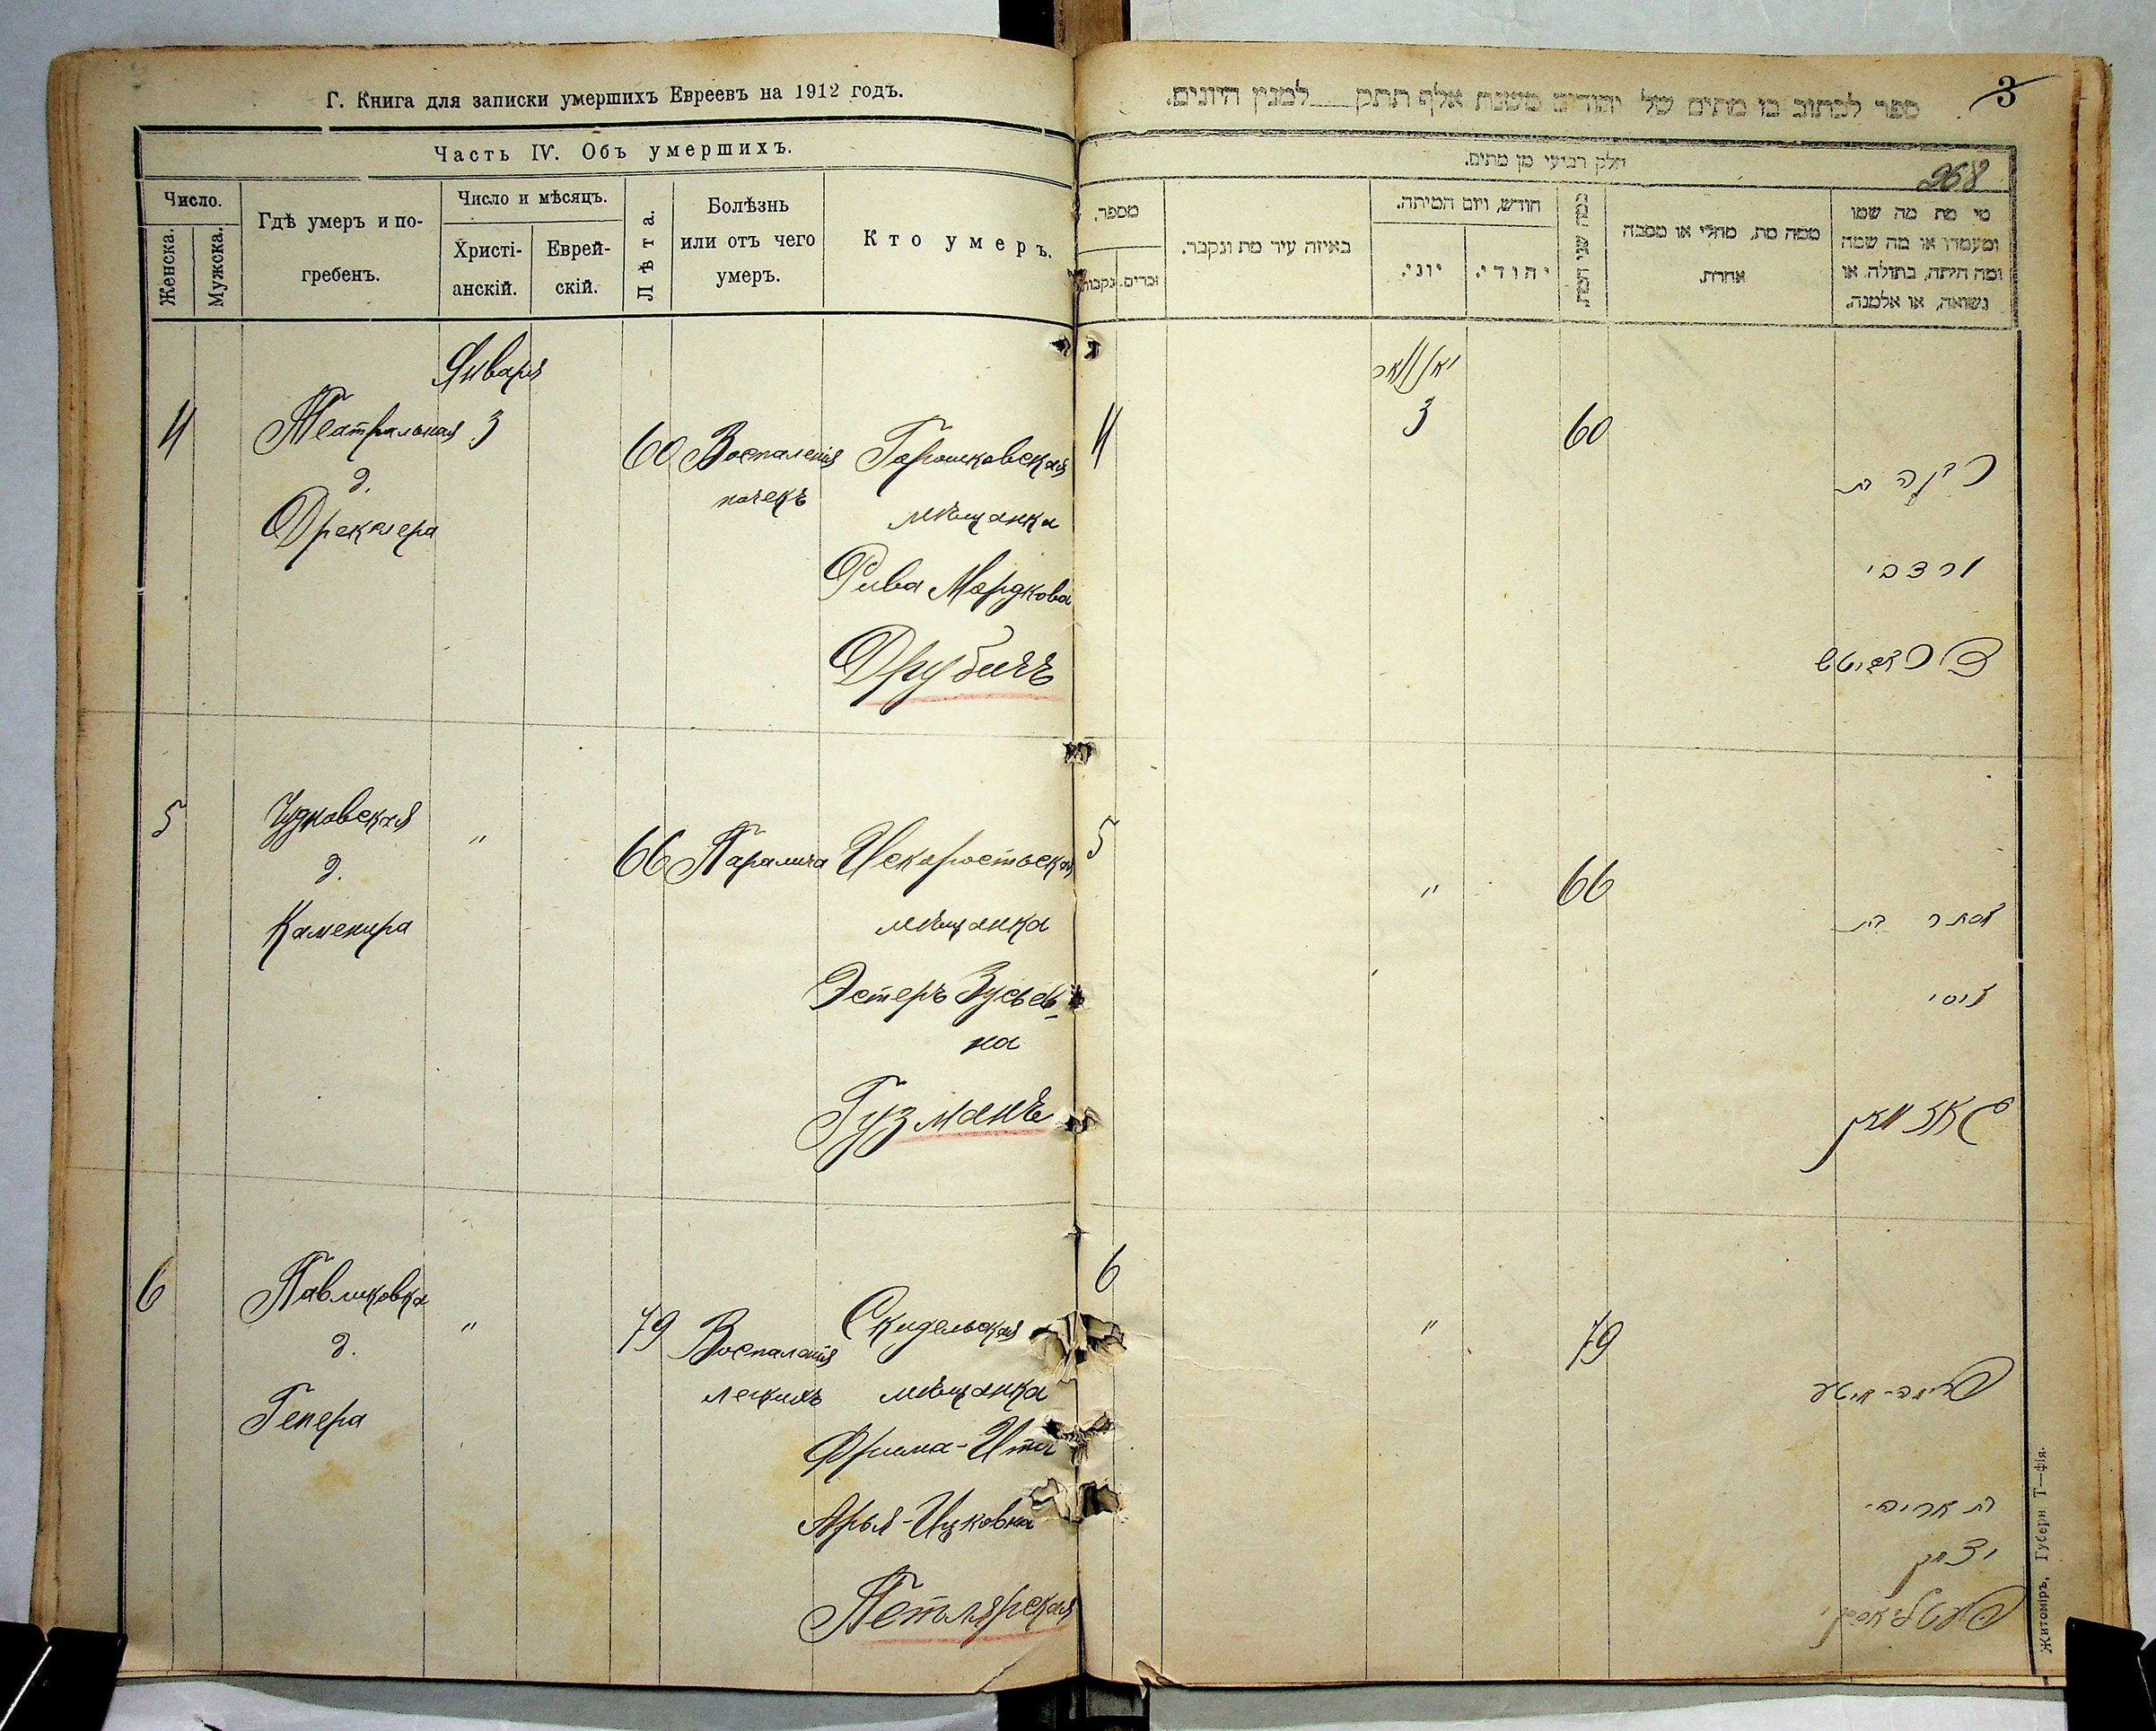 Г. Книга для записки умершихъ Евреевъ на 1912 годъ.
Часть IV. Объ умершихъ.
Число.
Женска.
Мужска.
Гдѣ умеръ и по-
гребенъ.
Число и мѣсяцъ.
Христі-
анскій.
Еврей-
скій.
Лѣта.
Болѣзнь
или отъ чего
умеръ.
Кто умеръ.
Января
4
Театральная 3
д.
Дрекслера
60
Воспаленія
почекъ
Горошковская
мѣщанка
Рива Мордкова
Друбичъ
5
Чудновская
д.
Каменира
"
66
Паралича
Искоростьская
мѣщанка
Эстеръ Зусьев-
на
Гузманъ
6
Павликовка
д.
Гепера
"
79
Воспаленія
легкихъ
Скидельская
мѣщанка
Фрима-Ита
Арья-Ицковна
Петлярская
ספר לכתוב בו מתים של יהודים משנת אלף תתק למנין היונים.
3
חלק רביעי מן מתים.
268
מספר.
זכרים.
נקבות
באיזה עיר מת ונקבר.
חודש, ויום המיתה.
יוני.
יהודי.
כמה שני המת.
ממה מת, מחלי או מסבה
אחרת.
מי מת מה שמו
ומעמדו או מה שמה
ומה היתה, בתולה, או
נשואה, או אלמנה.
יאנואר
4
3
60
רבקה בת
מרדכי
דרוביטש
5
"
66
אסתר בת
זוסי
גוזמאן
6
"
79
פרימה-איטא
בת אריה
יצחק
Житоміръ, Губерн Т—фія.